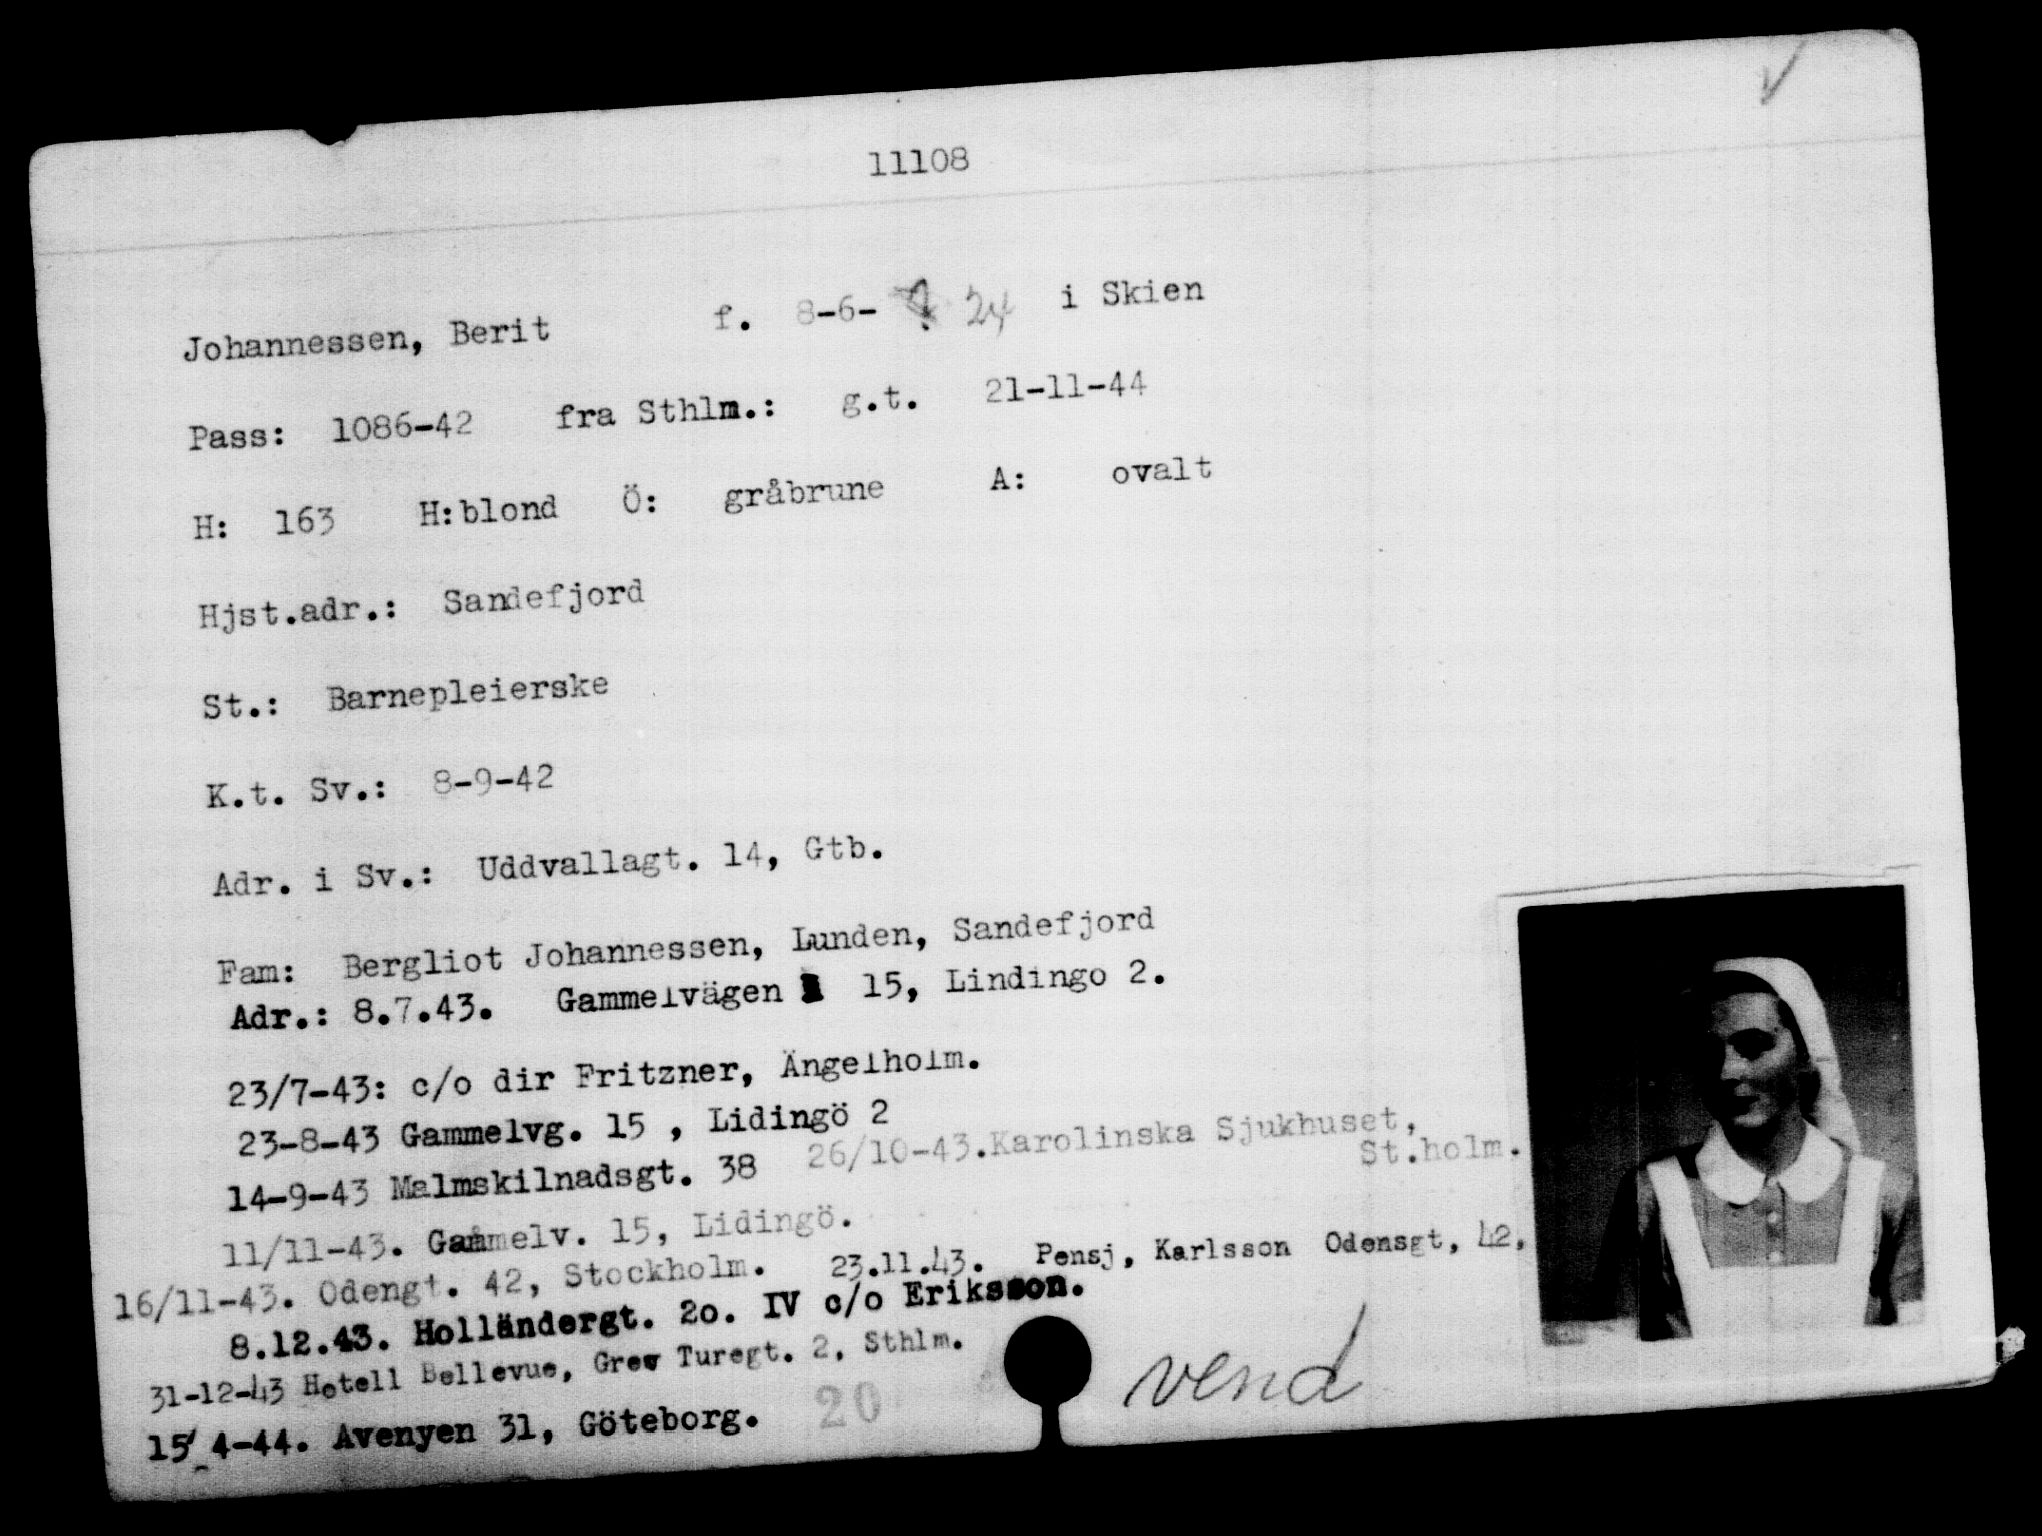 11108
Johannessen, Berit f. 8-6- 24 i Skien
Pass: 1086-42 fra Sthlm.: g.t. 21-11-44
H: 163 H:blond Ö: gråbrune A: ovalt
Hjst.adr.: Sandefjord
St.: Barnepleierske
K.t. Sv.: 8-9-42
Adr. i Sv.: Uddvallagt. 14, Gtb.
Fam: Bergliot Johannessen, Lunden, Sandefjord
Adr.: 8.7.43. Gammelvägen 15, Lindingo 2.
23/7-43: c/o dir Fritzner, Ängelholm.
23-8-43 Gammelvg. 15 , Lidingö 2
14-9-43 Malmskilnadsgt. 38 26/10-43.Karolinska Sjukhuset,
St.holm.
11/11-43. Gammelv. 15, Lidingö.
16/11-43. Odengt. 42, Stockholm. 23.11.43. Pensj, Karlsson Odensgt, 42,
8.12.43. Holländergt. 2o. IV c/o Eriksson.
31-12-43 Hotell Bellevue, Grev Turegt. 2, Sthlm.
15/4-44. Avenyen 31, Göteborg.
20
vend